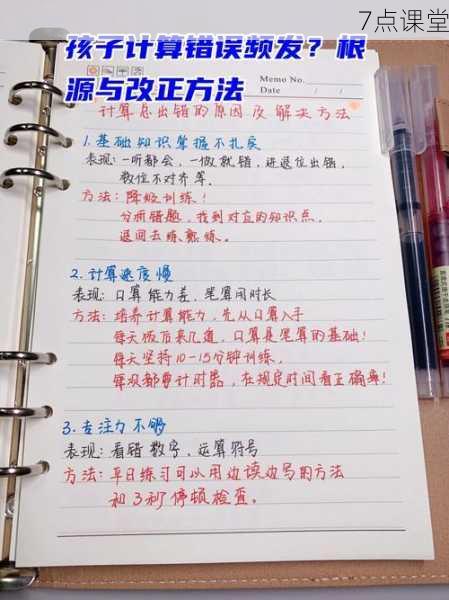 7点课堂
孩子计算错误频发？根
源与改正方法
Memo No.
Date / /
计算总出错的原因及解决方法
1.基础知识掌握不扎实
表现：一听都会，一做就错，进退位出错，
数位不对齐等。
方法：降级训练！
分析错题，找到对应的知识点，
退回去练熟练。
2.计算速度慢
表现：口算能力差，笔算用时长
方法：培养计算能力，先从口算入手
每天饭后来几道，口算是笔算的基础！
每天坚持10-15分钟训练，
每次都要计时器，在规定时间看正确率！
3.专注力不够
表现：看错数字，运算符号
方法：平日练习可以用边读边写的方法
和3秒停顿检查。